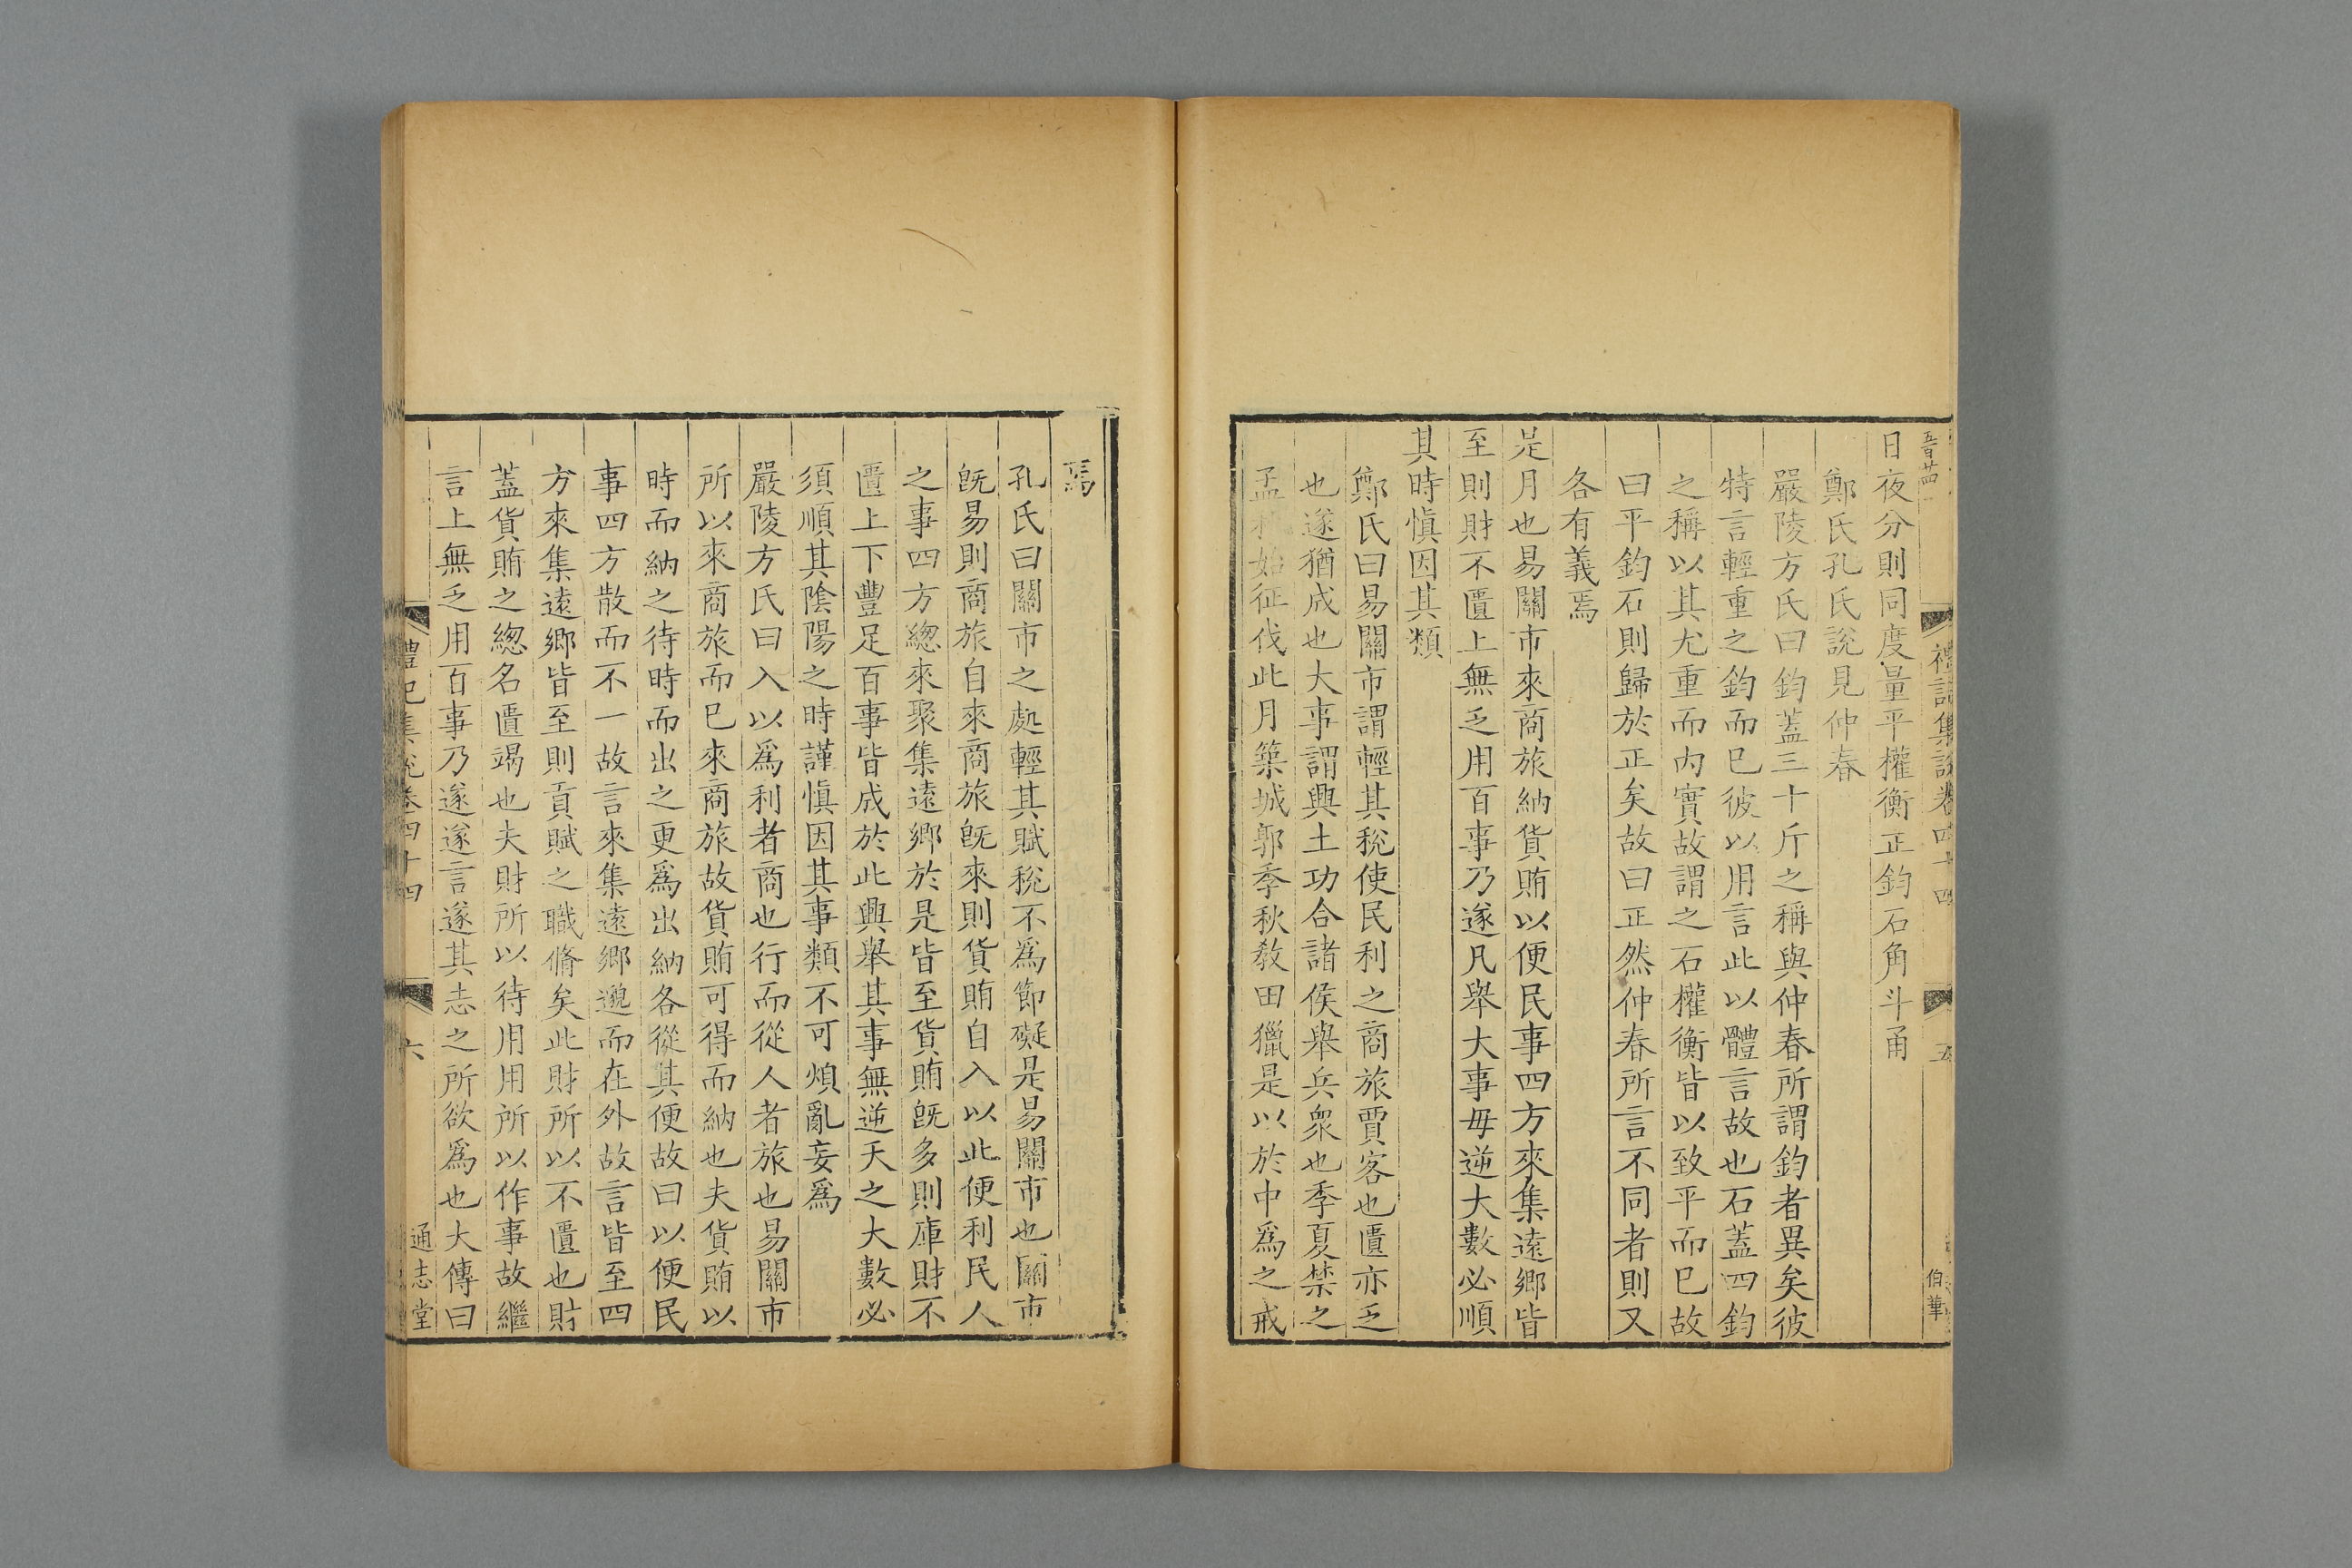 禮記集說卷四十四
五
伯華
日夜分則同度量平權衡正鈞石角斗甬
鄭氏孔氏說見仲春
嚴陵方氏曰鈞蓋三十斤之稱與仲春所謂鈞者異矣彼
特言輕重之鈞而已彼以用言此以體言故也石蓋四鈞
之稱以其尤重而內實故謂之石權衡皆以致平而已故
曰平鈞石則歸於正矣故曰正然仲春所言不同者則又
各有義焉
是月也易關市來商旅納貨賄以便民事四方來集遠鄉皆
至則財不匱上無乏用百事乃遂凡舉大事毋逆大數必順
其時慎因其類
鄭氏曰易關市謂輕其稅使民利之商旅賈客也匱亦乏
也遂猶成也大事謂興土功合諸侯舉兵衆也季夏禁之
孟秋始征伐此月築城郭季秋教田獵是以於中爲之戒
焉
孔氏曰關市之處輕其賦稅不爲節礙是易關市也關市
旣易則商旅自來商旅旣來則貨賄自入以此便利民人
之事四方緫來聚集遠鄉於是皆至貨賄旣多則庫財不
匱上下豐足百事皆成於此興舉其事無逆天之大數必
須順其陰陽之時謹慎因其事類不可煩亂妄爲
嚴陵方氏曰入以爲利者商也行而從人者旅也易關市
所以來商旅而已來商旅故貨賄可得而納也夫貨賄以
時而納之待時而出之更爲出納各從其便故曰以便民
事四方散而不一故言來集遠鄉邈而在外故言皆至四
方來集遠鄉皆至則貢賦之職脩矣此財所以不匱也財
蓋貨賄之緫名匱竭也夫財所以待用用所以作事故繼
言上無乏用百事乃遂遂言遂其志之所欲爲也大傳曰
禮記集說卷四十四
六
通志堂